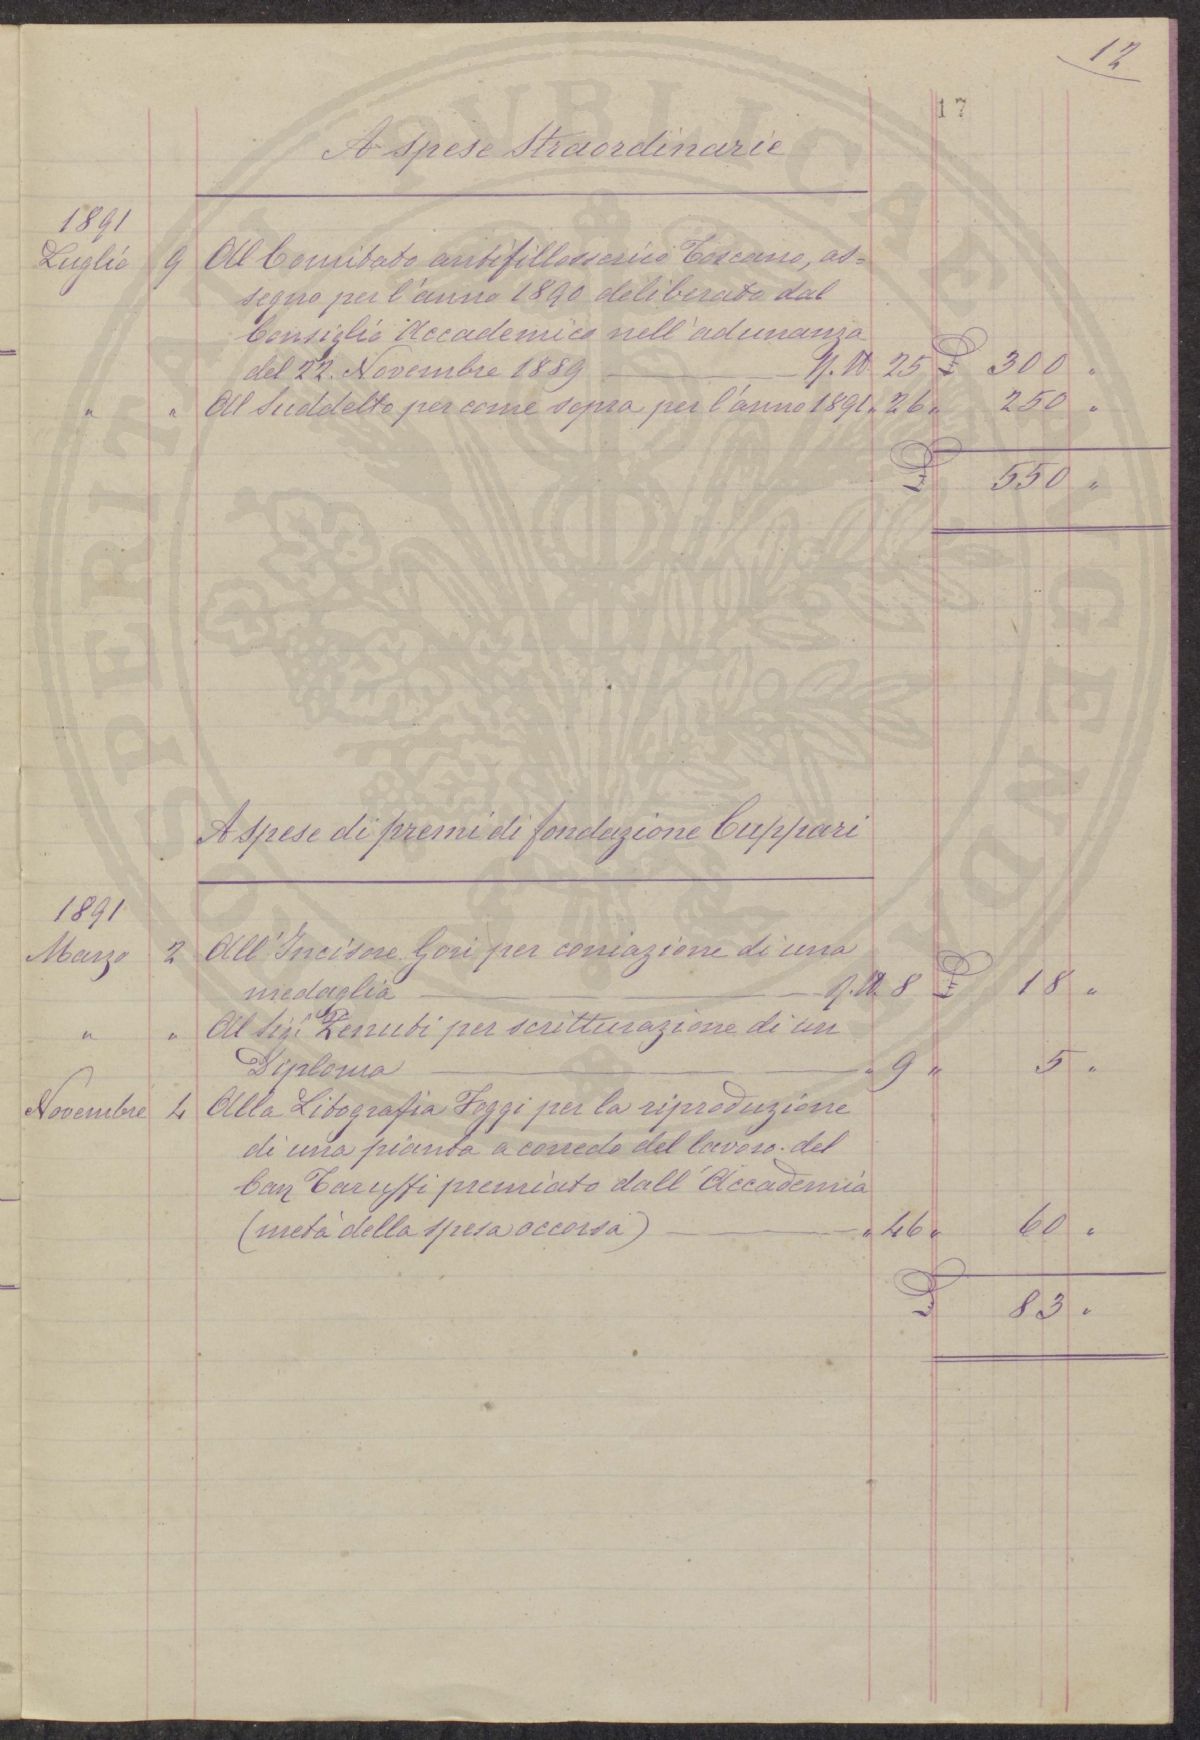 12
17
A spese straordinarie
1891
Luglio 9 Al Comitato antifillosserico Toscano, as=
segno per l'anno 1890 deliberato dal
Consiglio Accademico nell'adunanza
del 22. Novembre 1889 25 £ 300 "
" " Al Suddetto per come sopra per l'anno 1891 " 26 " 250 "
£ 550 "
A spese di premi di fondazione Cuppari
1891
Marzo 2 All'Incisore Gori per coniazione di una
medaglia 8 £ 18 "
" " Al Sigr Zenuti per scritturazione di un
Diploma " 9 " 5 "
Novembre 4 Alla Litografia Foggi per la riproduzione
di una pianta a corredo del lavoro del
Taruffi premiato dall'Accademia
(metà della spesa occorsa) " 46 " 60 "
£ 83 "